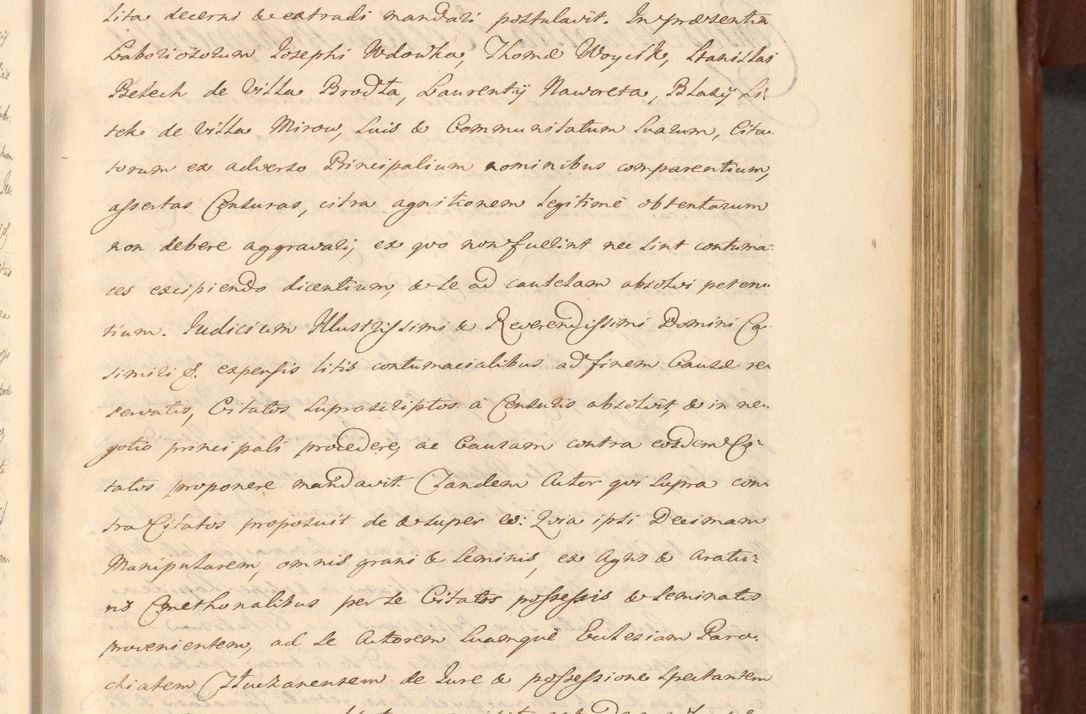 lita decerni & extradi mandari postulavit. In præsentia
Laboriosorum Josephi Wdowka, Thomæ Woycik, Stanislai
Betech de Villa Brodła, Laurentij Nawreta, Blasij Li-
tek de Villa Mirow, suis & Communitatum suarum, Cita-
torum ex adverso Principalium nominibus comparentium,
assertas Censuras, citra agnitionem legitimè obtentarum
non debere aggravari, ex quo non fuerint nec sint contuma-
ces excipiendo dicentium, & se ad cautelam absolvi peten-
tium. Judicium Illustrissimi & Reverendissimi Domini Ca-
simiri &. expensis litis contumacialibus ad finem Causæ re-
servatis, Citatos suprascriptos à Censuris absolvit & in ne-
gotio principali procedere, ac Causam contra eosdem Ci-
tatos proponere mandavit. Tandem Actor qui supra con-
tra Citatos proposuit de & super eo: Quia ipsi Decimam
Manipularem, omnis grani & seminis, ex Agris & Aratu-
ris Cmethonalibus per se Citatos possessis & seminatis
provenientem, ad se Actorem suamquè Ecclesiam Paro-
chialem de Jure & possessione spectantem